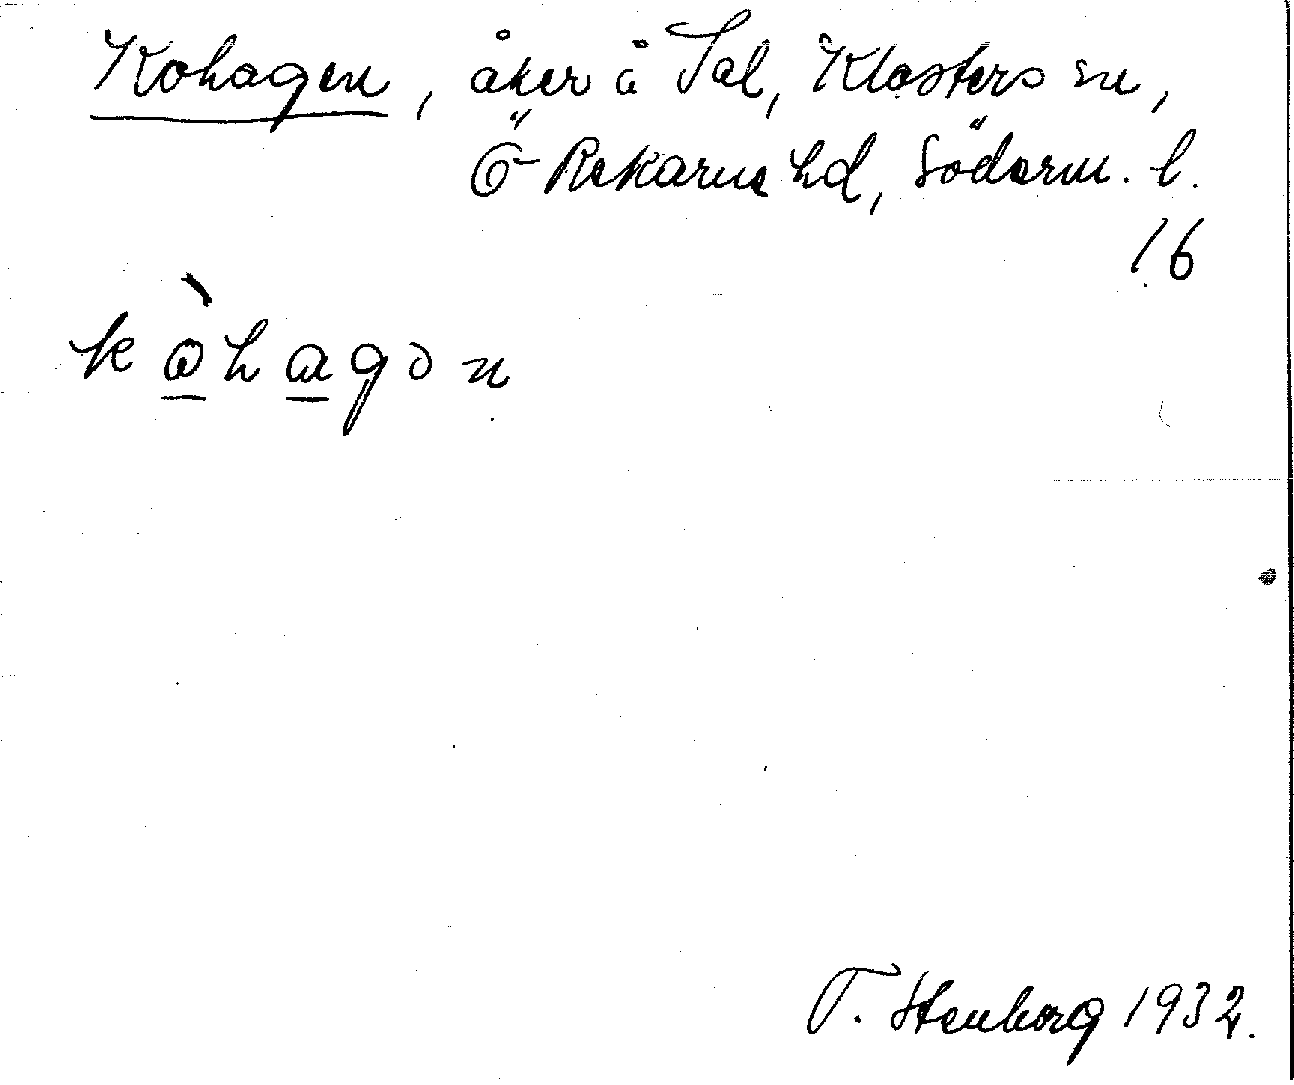 Kohagen, åker å Sal, Klosters sn,
Ö-Rekarne hd, Söderm. l.
16
kòhagən
T. Stenborg 1932.